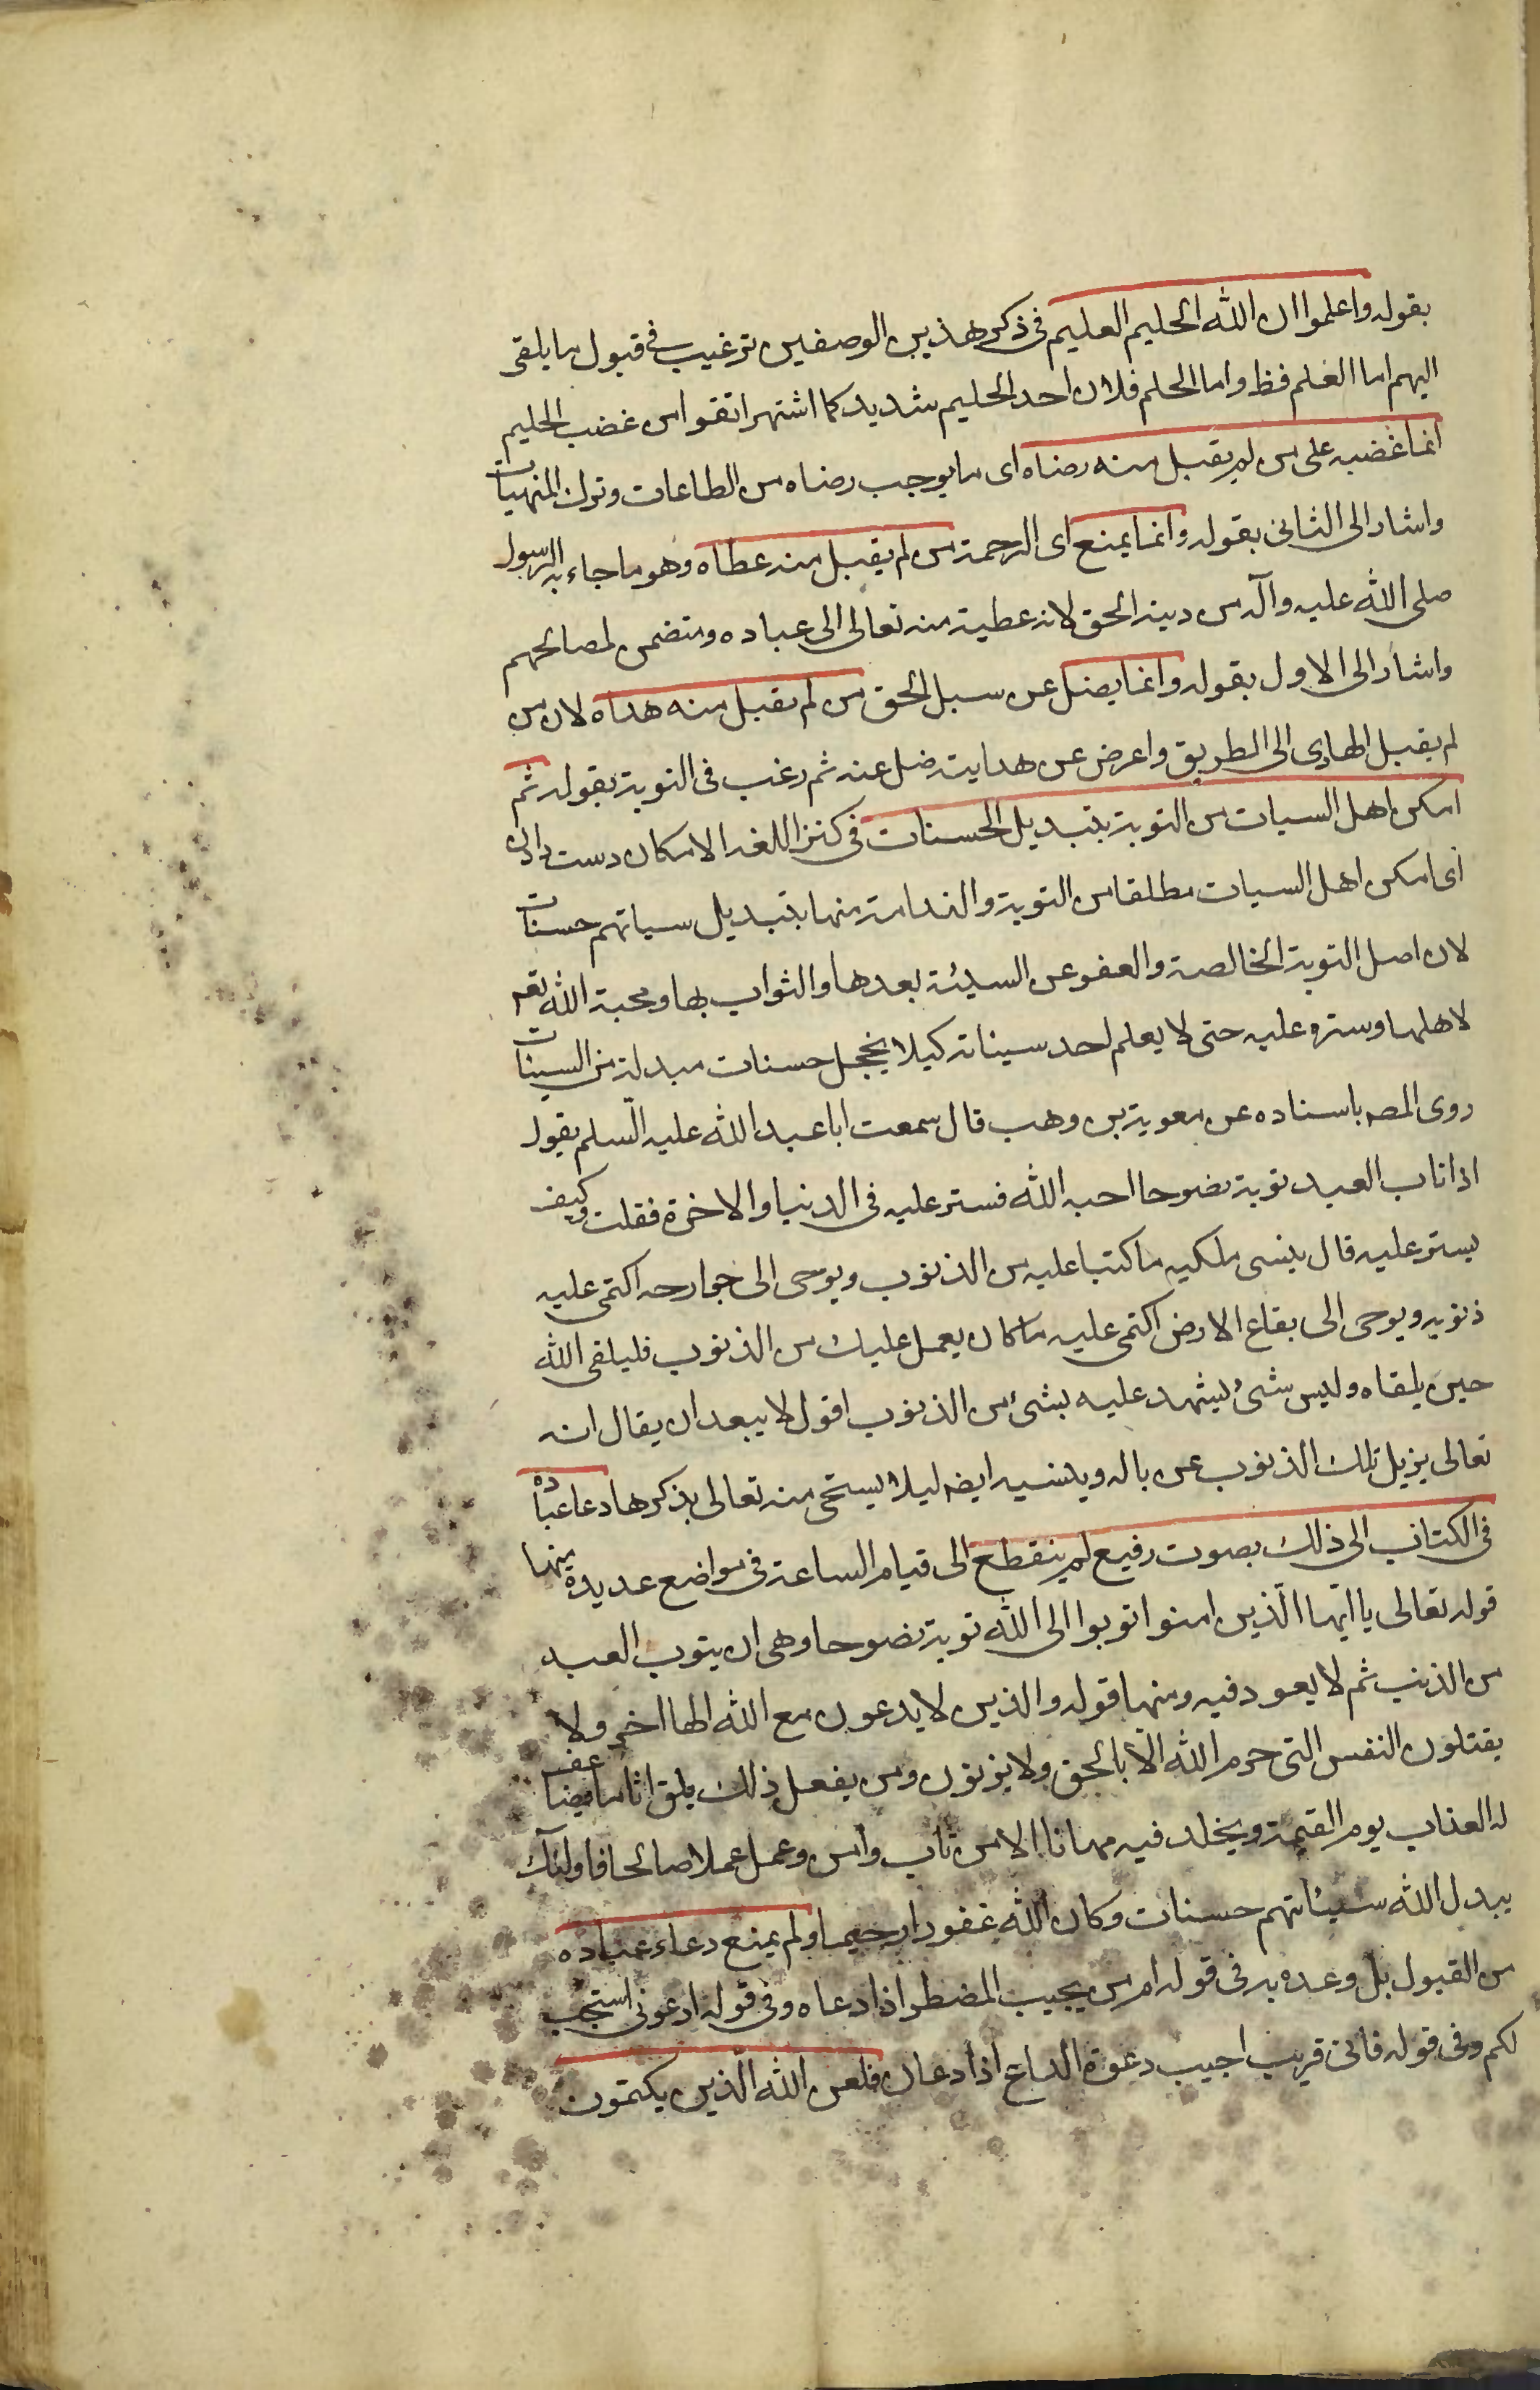 بقوله واعلموا ان الله الحليم العليم فى ذكر هذين الوصفين ترغيب فى قبول ما يلقى
اليهم اما العلم فظ واما الحلم فلان احد الحليم شديد كما اشتهر اتقوا من غضب الحليم
انما غضبه على من لم يقبل منه رضاه اى ما يوجب رضاه من الطاعات وترك المنهيات
واشار الى الثانى بقوله وانما يمنع اى الرحمة من لم يقبل منه عطاه وهو ما جاء به الرسول
صلى الله عليه وآله من دينه الحق لانه عطية منه تعالى الى عباده ومتضمن لمصالحهم
واشار الى الاول بقوله وانما يضل عن سبل الحق من لم يقبل منه هداه لان من
لم يقبل الهادى الى الطريق واعرض عن هدايته ضل عنه ثم رغب فى التوبة بقوله ثم
امكن اهل السيات من التوبة بتبديل الحسنات فى كنز اللغه الامكان دست دادن
اى امكن اهل السيات مطلقا من التوبة والندامة منها بتبديل سياتهم حسنات
لان اصل التوبة الخالصة والعفو عن السيئة بعدها والثواب بها ومحبة الله تعه
لاهلها وستره عليه حتى لا يعلم احد سيئاته كيلا يخجل حسنات مبدلة من السيئات
روى المصه باسناده عن معوية بن وهب قال سمعت ابا عبد الله عليه السلم يقول
اذا تاب العبد توبة نصوحا احبه الله فستر عليه فى الدنيا والاخرة فقلت وكيف
يستر عليه قال ينسى ملكيه ما كتبا عليه من الذنوب ويوحى الى جوارحه اكتمى عليه
ذنوبه ويوحى الى بقاع الارض اكتمى عليه ما كان يعمل عليك من الذنوب فليلقى الله
حين يلقاه وليس شئ ليشهد عليه بشئ من الذنوب اقول لا يبعد ان يقال انه
تعالى يزيل تلك الذنوب عن باله وينسيه ايضه ليلا يستحى منه تعالى بذكرها دعا عباده
فى الكتاب الى ذلك بصوت رفيع لم ينقطع الى قيام الساعة فى مواضع عديدة منها
قوله تعالى يا ايها الذين امنوا توبوا الى الله توبة نصوحا وهى ان يتوب العبد
من الذنب ثم لا يعود فيه ومنها قوله والذين لا يدعون مع الله الها اخر ولا
يقتلون النفس التى حرم الله الا بالحق ولا يزنون ومن يفعل ذلك يلق اثاما يضاعف
له العذاب يوم القيمة ويخلد فيه مهانا الا من تاب وامن وعمل عملا صالحا فاولئك
يبدل الله سيئاتهم حسنات وكان الله غفورا رحيما ولم يمنع دعاء عباده
من القبول بل وعده به فى قوله ام من يجيب المضطر اذا دعاه وفى قوله ادعونى استجب
لكم وفى قوله فانى قريب اجيب دعوة الداع اذا دعان فلعن الله الذين يكتمون